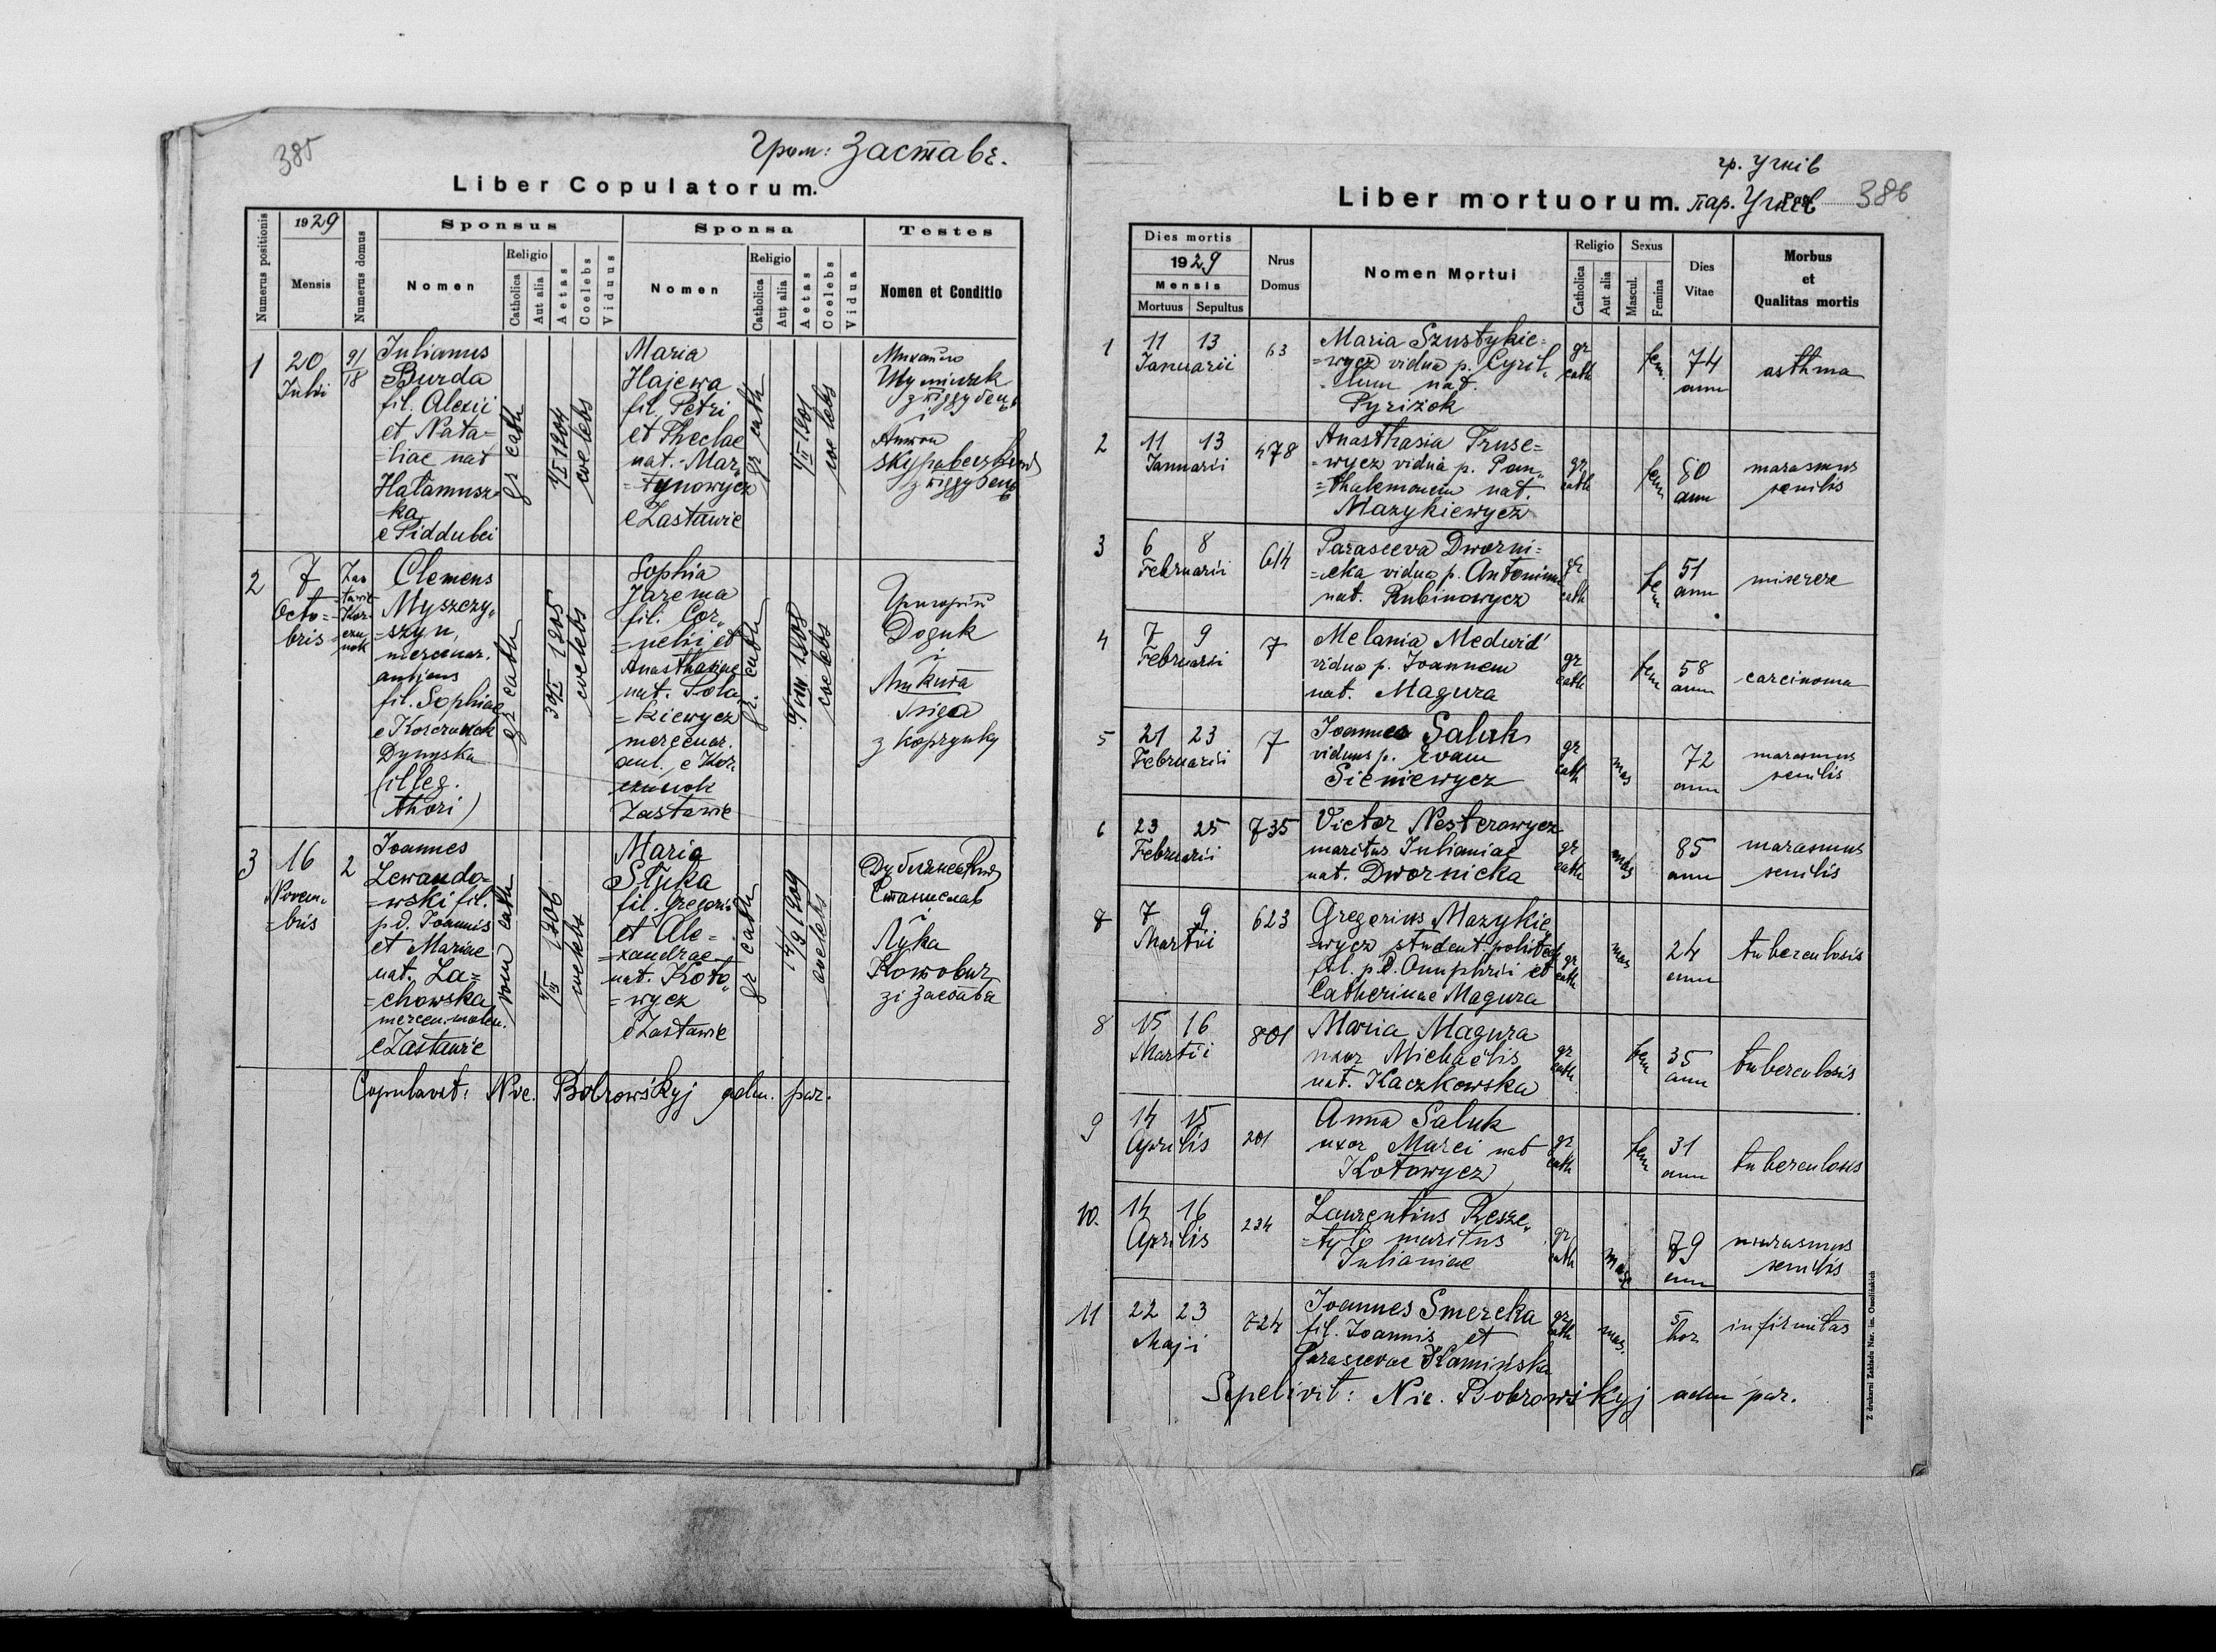 385
Гром: Заставє.
Liber Copulatorum.
Numerus positionis
1929
Mensis
Numerus domus
Sponsus
Nomen
Religio
Catholica
Aut alia
Aetas
Coelebs
Viduus
Sponsa
Nomen
Religio
Catholica
Aut alia
Aetas
Coelebs
Vidua
Testes
Nomen et Conditio
1
20
Julii
91/18
Julianus
Burda
fil. Alexii
et Nata=
=liae nat
Hałamusz=
=ka
e Piddubci
gr cath
1904
coelebs
Maria
Hajewa
fil. Petri
et Theclae
nat. Mar„
=tynowycz
e Zastawie
gr cath
1901
coelebs
Михайло
і
Антон
2
7
Octo=
bris
Zas
=tawie
=Kor=
=czu
nok
Clemens
Myszczy„
=szyn,
mercenar.
fil. Sophiae
Dynyska
(illeg.
thori)
gr cath
30/XI 1905
coelebs
Sophia
Jarema
fil. Cor„
=nelii et
Anasthasiae
nat. Pola
=kiewycz
mercenar.
e Kor„
czunok
Zastawie
gr. cath
1908
coelebs
Григорій
і
Микита
3
16
Novem„
=bris
2
Joannes
Lewando=
=wski fil.
p.d. Joannis
et Mariae
nat. La=
=chowska
e Zastawie
rom cath
1906
coelebs
Maria
Styka
fil. Gregorii
et Ale=
=xandrae
nat. Koto„
=wycz
e Zastawie
gr cath
14/9 1909
coelebs
Станислав
і
Лука
Котович
зі Застава
Copulavit: Nic. Bobrowśkyj adm. par.
гр. Угнів
Liber mortuorum. пар. Угнів
386
Dies mortis
1929
Mensis
Mortuus
Sepultus
Nrus
Domus
Nomen Mortui
Religio
Catholica
Aut alia
Sexus
Mascul.
Femina
Dies
Vitae
Morbus
et
Qualitas mortis
1
11 13
Januarii
63
Maria Szustykie=
=wycz vidua p. Cyril„
=lum nat.
Pyriżok
gr
cath
fem.
74
ann
asthma
2
11 13
Januarii
478
Anasthasia Truse=
=wycz vidua p. Pan„
=thalemonem nat.
Mazykiewycz
gr
cath
fem
80
ann
marasmus
senilis
3
6 8
Februarii
614
Parasceva Dworni=
=cka vidua p. Antonium
nat. Rubinowycz
gr
cath
fem
51
ann
miserere
4
7 9
Februarii
7
Melania Medwid'
vidua p. Joannem
nat. Magura
gr
cath
fem
58
ann
carcinoma
5
21 23
Februarii
7
Joannes Saluk
viduus p. Evam
Sieniewycz
gr
cath
mas
72
ann
marasmus
senilis
6
23 25
Februarii
735
Victor Nesterowycz
maritus Julianiae
nat. Dwornicka
gr
cath
mas
85
ann
marasmus
senilis
8
7 9
Martii
623
Gregorius Mazykie„
=wycz student. politech
fil. p.d. Onuphrii et
Catherinae Magura
gr
cath
mas
24
ann
tuberculosis
8
15 16
Martii
801
Maria Magura
uxor Michaëlis
nat. Kaczkowska
gr
cath
fem
35
ann
tuberculosis
9
14 15
Aprilis
201
Anna Saluk
uxor Marci nat
Kotowycz
gr
cath
fem
31
ann
tuberculosis
10.
14 16
Aprilis
234
Laurentius Resze„
=tyło maritus
Julianiae
gr
cath
masc
79
ann
marasmus
senilis
11
22 23
Maji
724
Joannes Smereka
fil. Joannis et
Parascevae Kamińska
gr
cath
mas.
5
hor
infirmitas
Sepelivit: Nic. Bobrowśkyj adm par.
Z drukarni Zakładu Nar. im. Ossolińskich